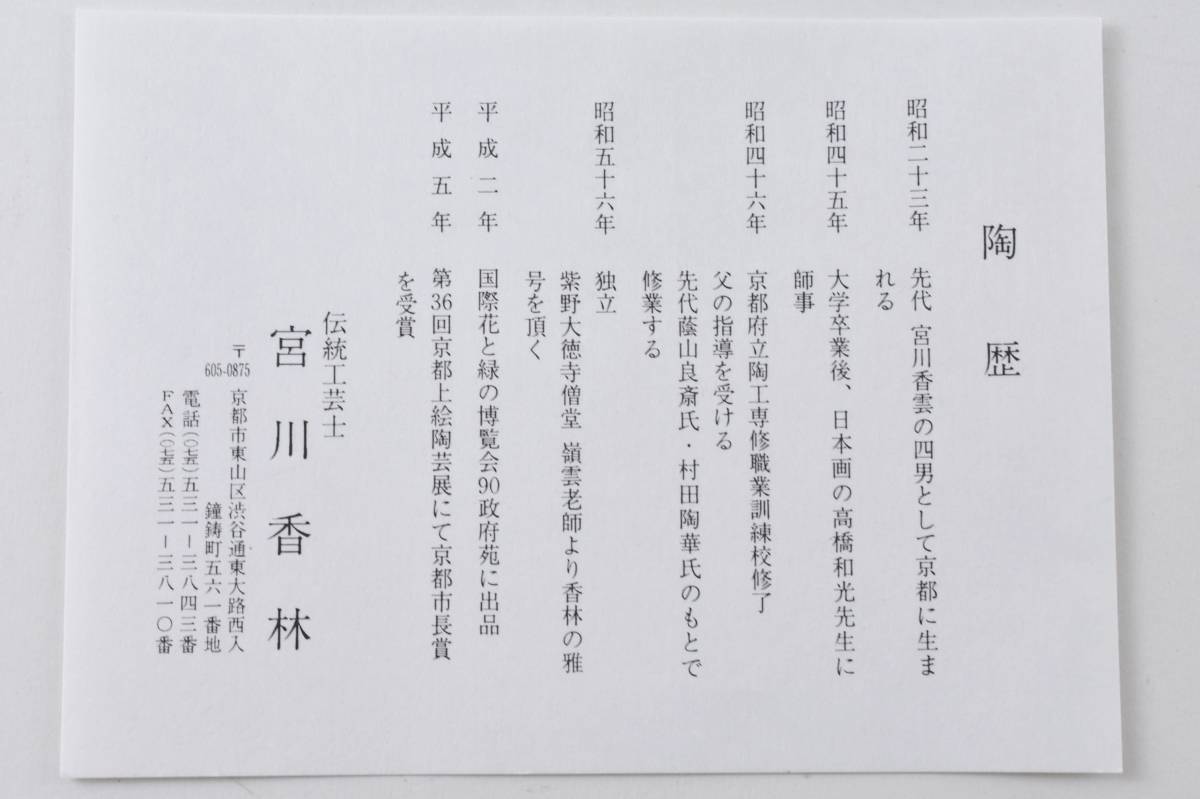 陶歴
昭和二十三年 先代 宮川香雲の四男として京都に生ま
れる
昭和四十五年 大学卒業後、日本画の高橋和光先生に
師事
昭和四十六年 京都府立陶工専修職業訓練校修了
父の指導を受ける
先代蔭山良斎氏・村田陶華氏のもとで
修業する
昭和五十六年 独立
紫野大徳寺僧堂 嶺雲老師より香林の雅
号を頂く
平成二年 国際花と緑の博覧会90政府苑に出品
平成五年 第36回京都上絵陶芸展にて京都市長賞
を受賞
伝統工芸士
宮川香林
〒605-0875 京都市東山区渋谷通東大路西入
鐘鋳町五六一番地
電話(〇七五)五三一-三八四三番
FAX(〇七五)五三一-三八一〇番